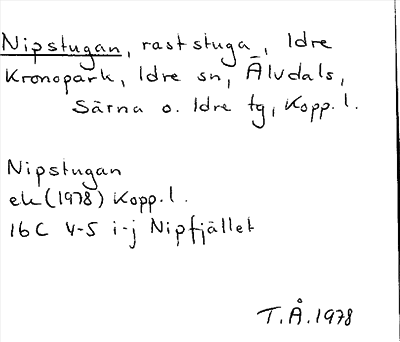 Nipstugan, raststuga, Idre
Kronopark, Idre sn, Älvdals,
Särna o. Idre tg, Kopp. l.
Nipstugan
ek (1978) Kopp. l.
16C 4-5 i-j Nipfjället
T.Å. 1978